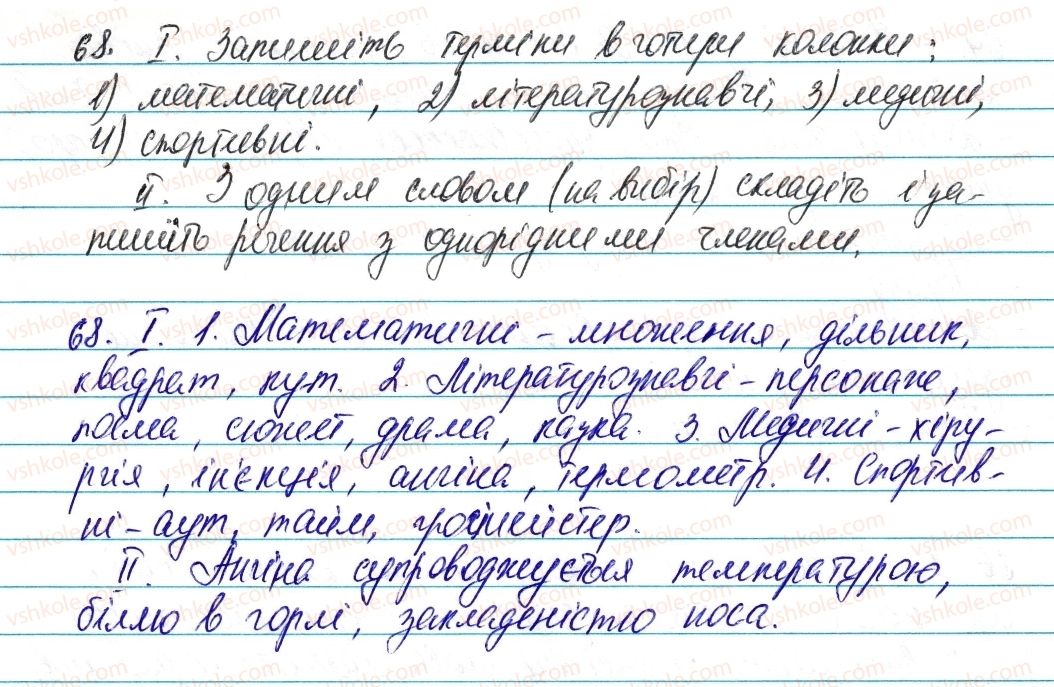 68. I. Запишіть терміни в чотири колонки:
1) математичні, 2) літературознавчі, 3) медичні,
4) спортивні.
II. З одним словом (на вибір) складіть і за-
пишіть речення з однорідними членами.
68. I. 1. Математичні – множення, дільник,
квадрат, кут. 2. Літературознавчі – персонаж,
поема, сюжет, драма, казка. 3. Медичні – хіру-
ргія, ін'єкція, ангіна, термометр. 4. Спортив-
ні – аут, тайм, гросмейстер.
II. Ангіна супроводжується температурою,
біллю в горлі, закладеністю носа.